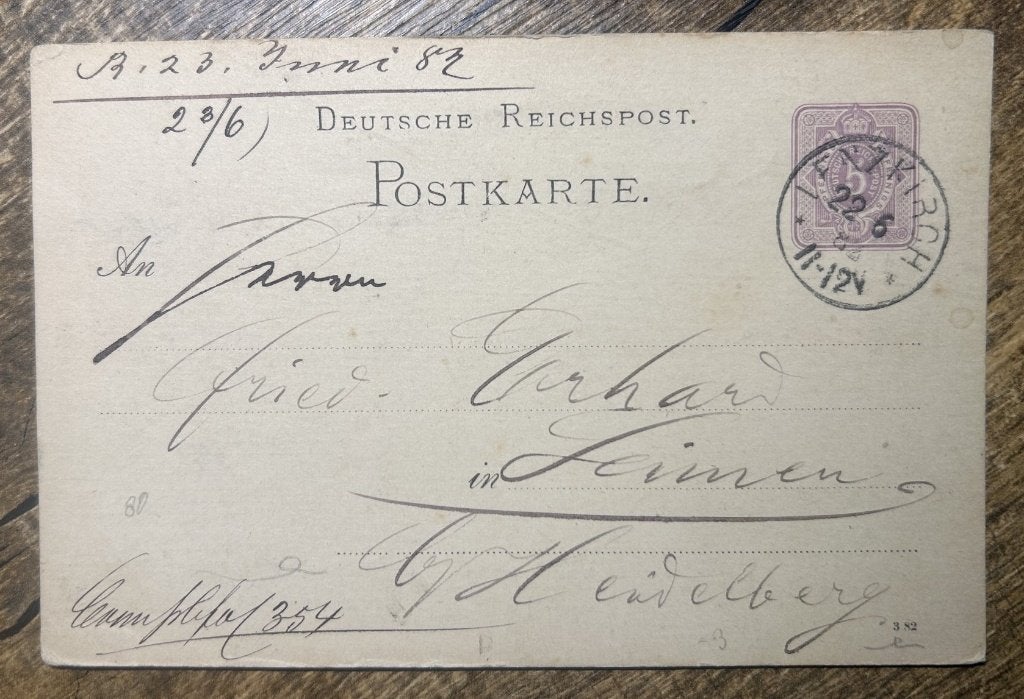 R. 23. Juni 82
23/6)
DEUTSCHE REICHSPOST.
POSTKARTE.
5
LENZKIRCH
22 6
82
11-12V
An Herrn
Fried. Erhard
in Leimen
b/ Heidelberg
354
3 82